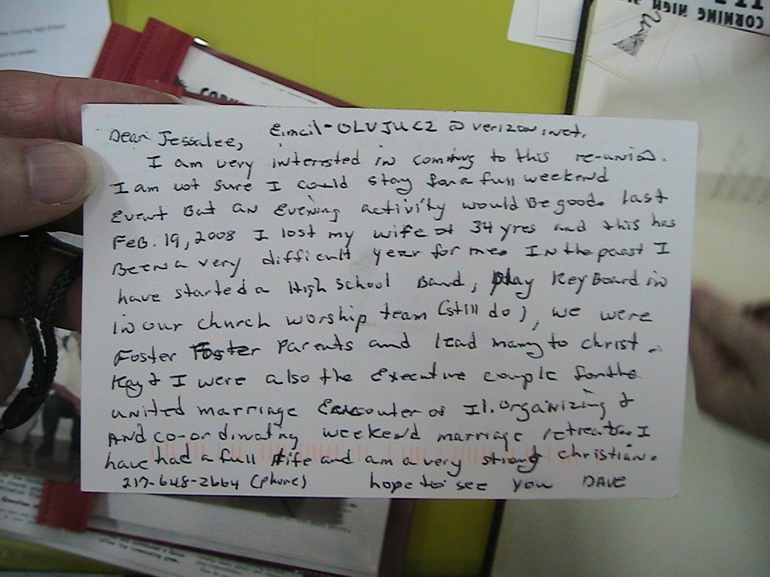 CORNING HIGH
Dear Jessalee, Email-OLVJUCZ @ verizon.net.
I am very interested in coming to this re-union.
I am not sure I could stay for a full weekend
event But an Evening activity would Be good. Last
Feb. 19, 2008 I lost my wife of 34 yres and this has
Been a very difficult year for me. In the past I
have started a High School Band, play KeyBoard in
in our church worship team (still do), we were
Foster Foster Parents and lead many to christ.
Kay & I were also the Executive couple for the
united marriage Encounter of Il. Organizing &
And co-ordinating weekend marriage retreats. I
have had a full life and am a very strong christian.
217-648-2664 (phone) hope to see you DAVE